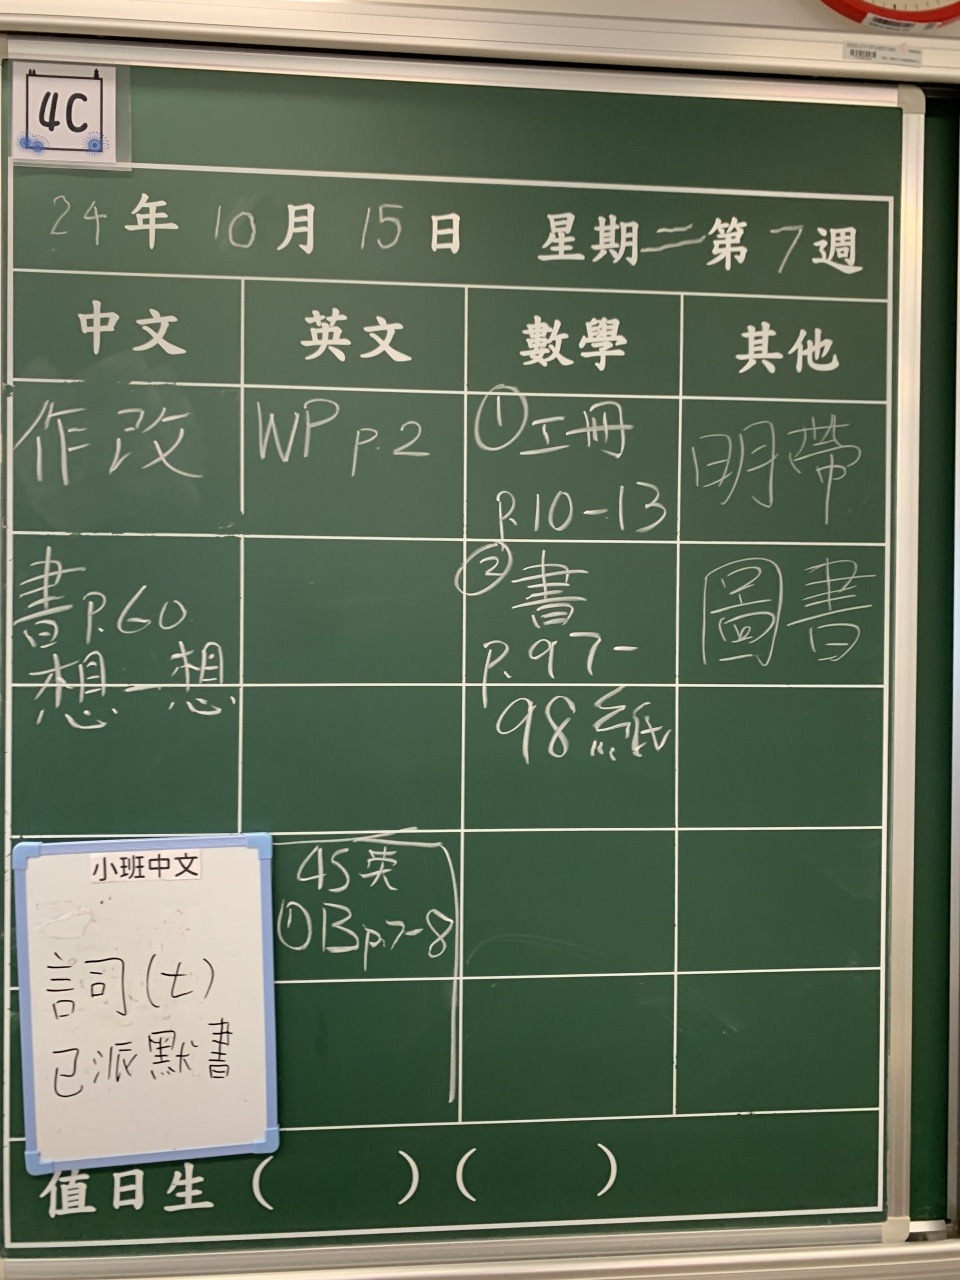 4C
24年10月15日 星期二第7週
中文 英文 數學 其他
作改
書P.60
想一想
WP p.2
①工冊
P.10-13
②書
P.97-
98紙
明帶
圖書
4S英
①B p.7-8
小班中文
詞(七)
已派默書
值日生( )( )